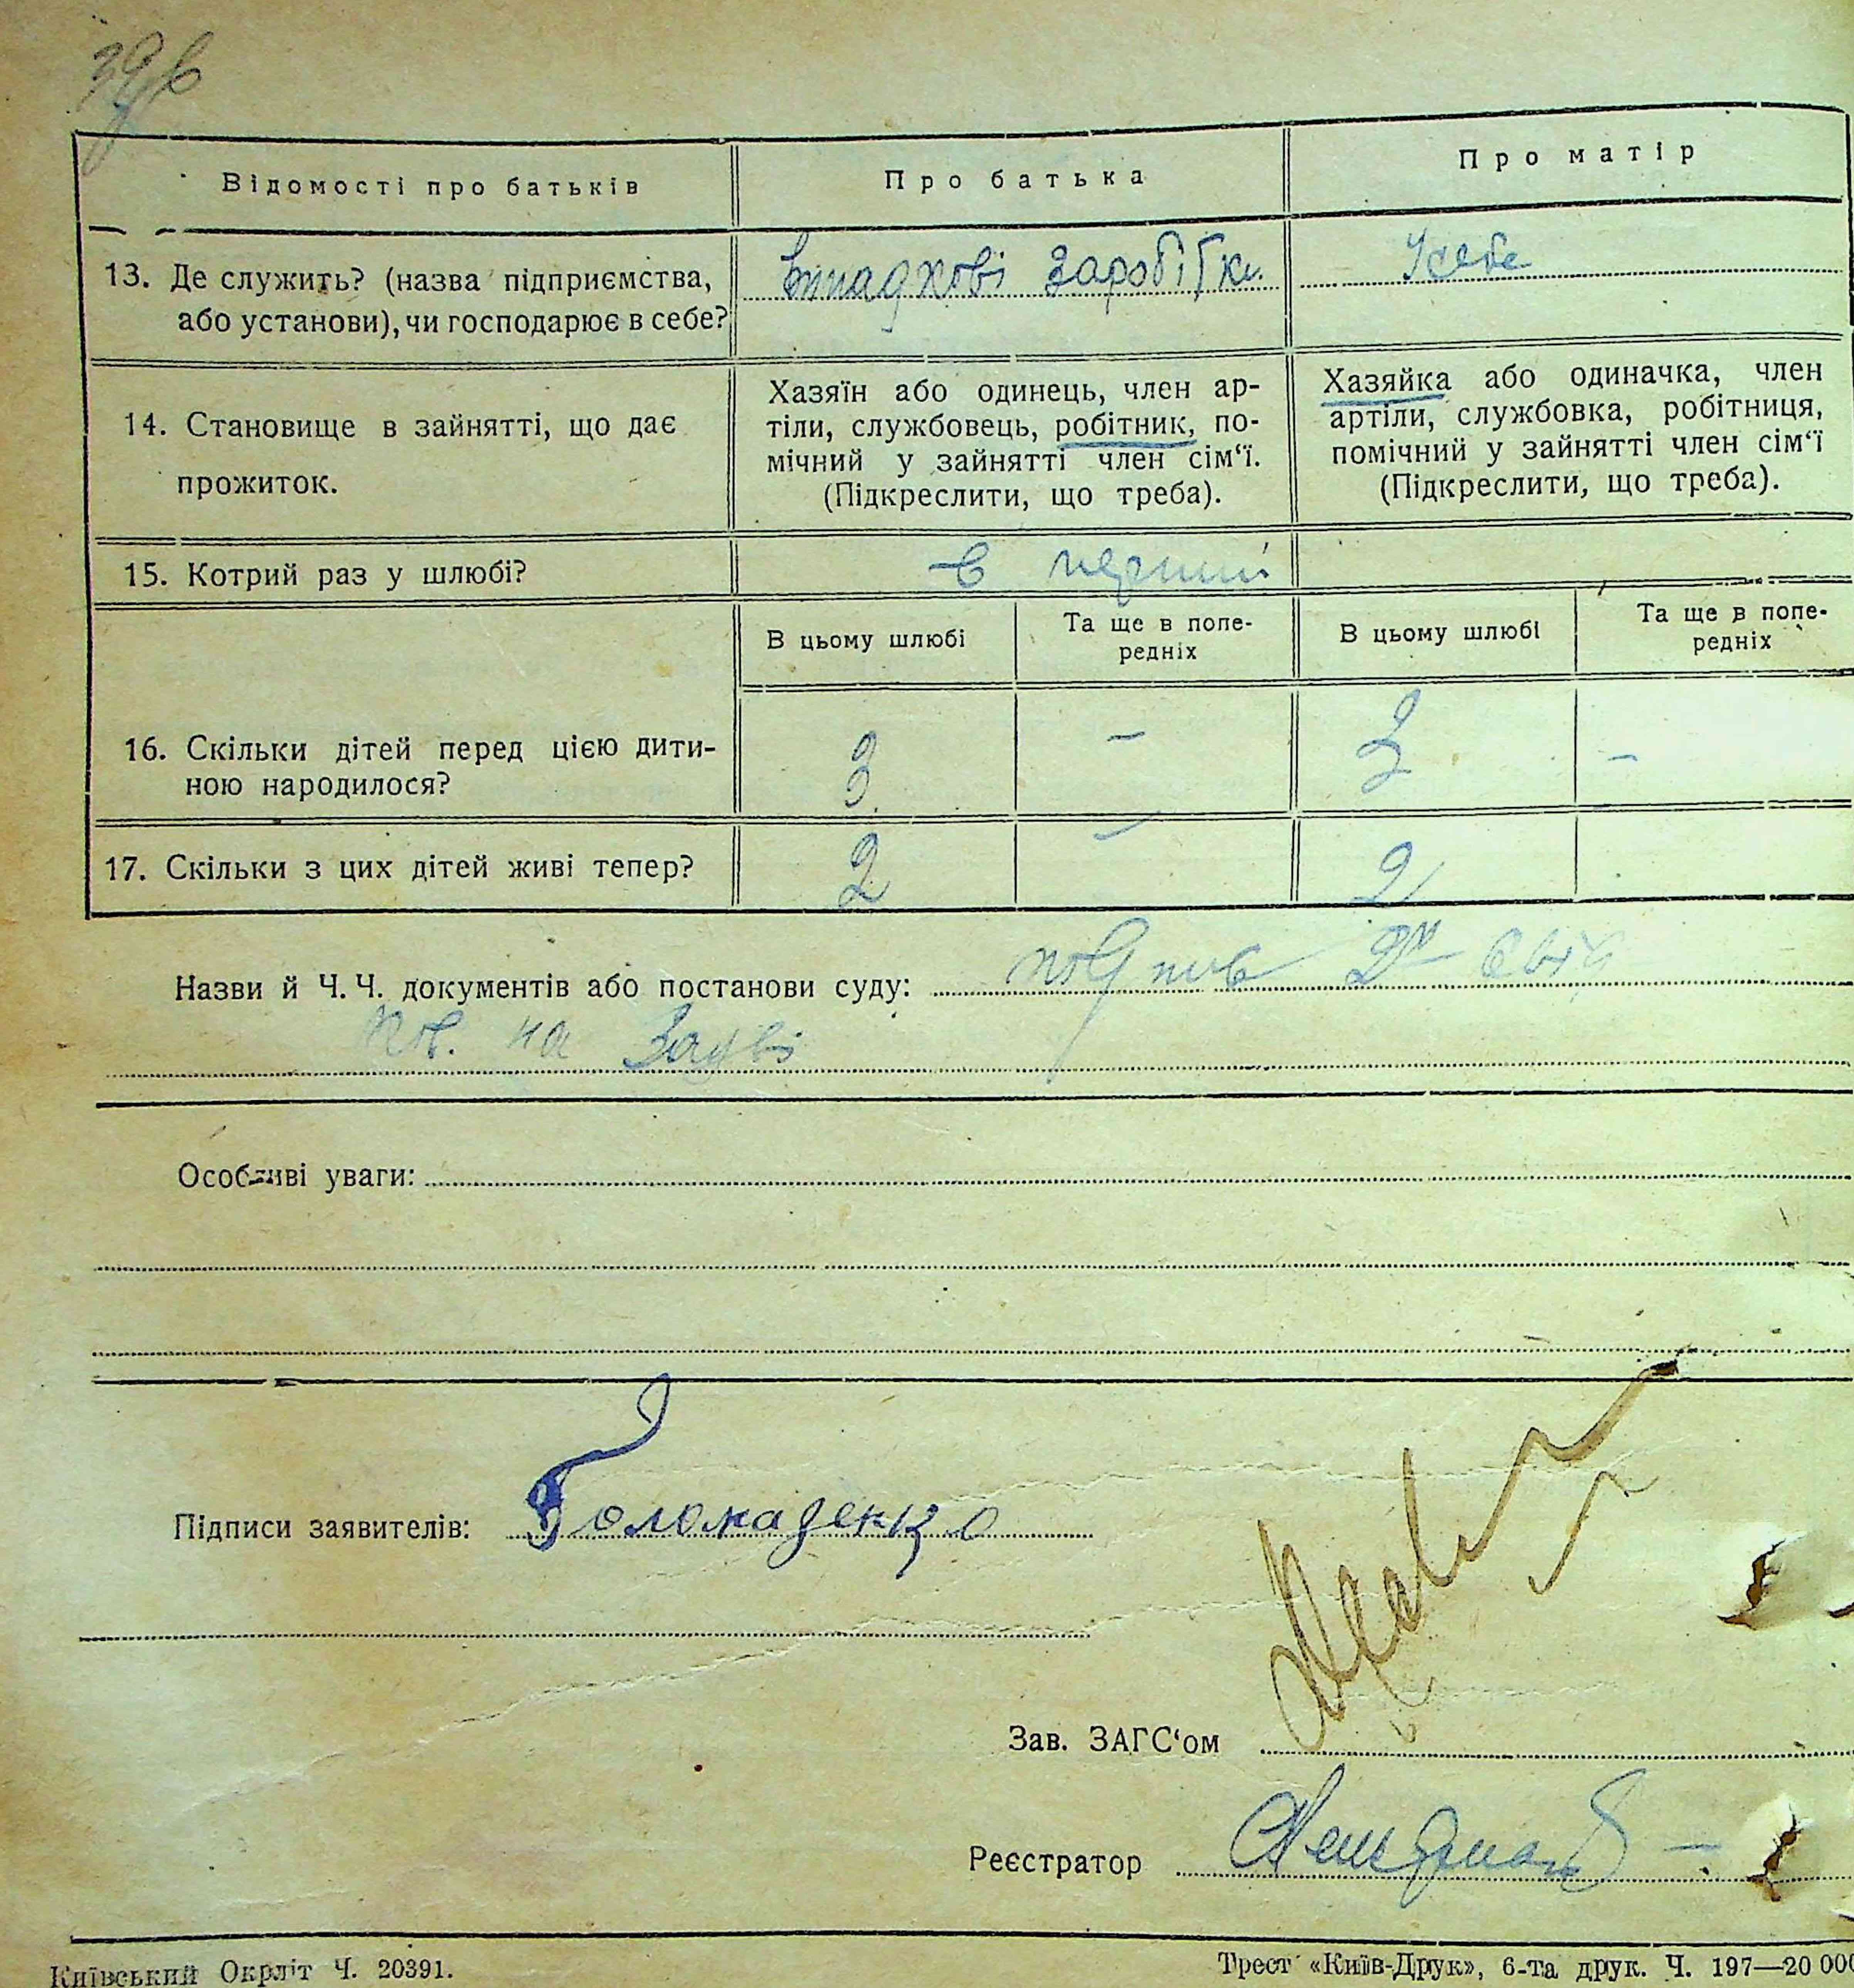 Відомості про батьків
Про батька
Про матір
13. Де служить? (назва підприємства,
або установи), чи господарює в себе?
Випадкові заробітки.
У себе
14. Становище в зайнятті, що дає
прожиток.
Хазяїн або одинець, член ар-
тіли, службовець, робітник, по-
мічний у зайнятті член сім'ї.
(Підкреслити, що треба).
Хазяйка або одиначка, член
артіли, службовка, робітниця,
помічний у зайнятті член сім'ї
(Підкреслити, що треба).
15. Котрий раз у шлюбі?
в перший
В цьому шлюбі
Та ще в попе-
редніх
В цьому шлюбі
Та ще в попе-
редніх
16. Скільки дітей перед цією дити-
ною народилося?
3.
–
3
–
17. Скільки з цих дітей живі тепер?
2
–
2
Назви й Ч. Ч. документів або постанови суду:
на
Особливі уваги:
Підписи заявителів:
Зав. ЗАГС'ом
Реєстратор
Київський Окрліт Ч. 20391.
Трест «Київ-Друк», 6-та друк. Ч. 197—20 000